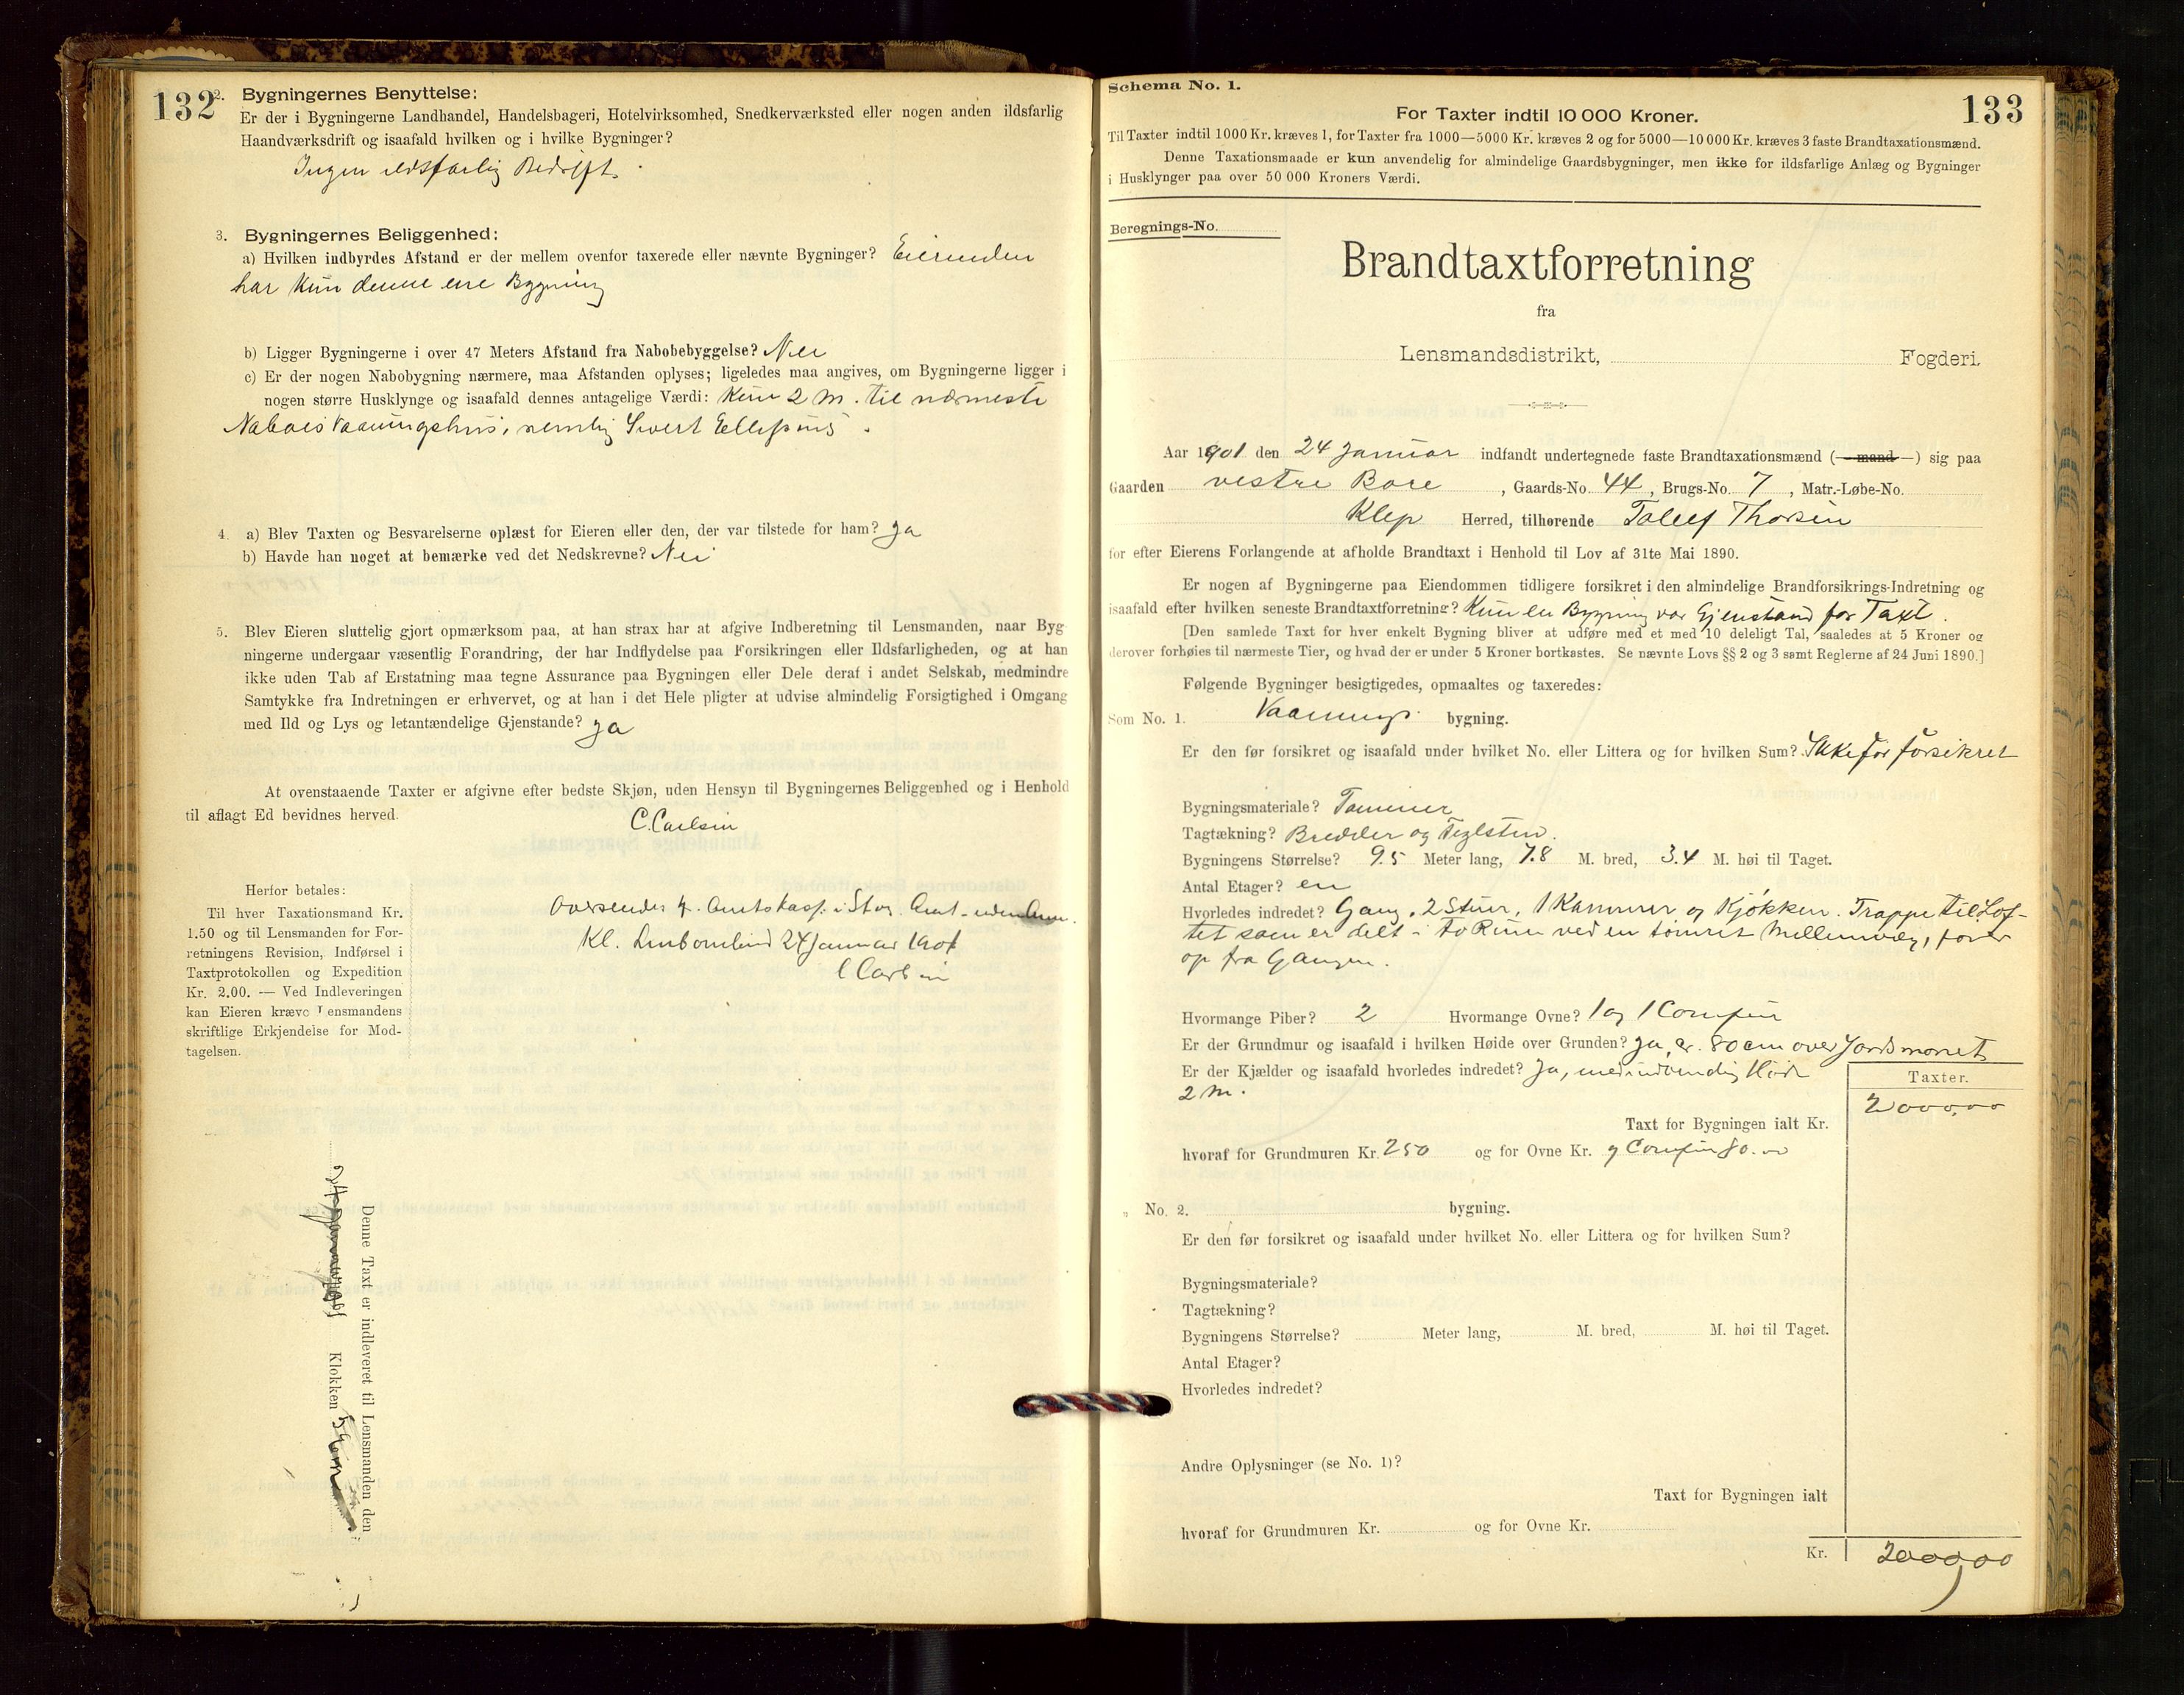 132
2. Bygningernes Benyttelse:
Er der i Bygningerne Landhandel, Handelsbageri, Hotelvirksomhed, Snedkerværksted eller nogen anden ildsfarlig
Haandværksdrift og isaafald hvilken og i hvilke Bygninger?
Ingen ildsfarlig Bedrift.
3. Bygningernes Beliggenhed:
a) Hvilken indbyrdes Afstand er der mellem ovenfor taxerede eller nævnte Bygninger? Eierinden
har Kun denne ene Bygning
b) Ligger Bygningerne i over 47 Meters Afstand fra Nabobebyggelse? Nei
c) Er der nogen Nabobygning nærmere, maa Afstanden oplyses; ligeledes maa angives, om Bygningerne ligger i
nogen større Husklynge og isaafald dennes antagelige Værdi: Kun 2 m. til nærmeste
Naboes Vaaningshus, nemlig Sivert
4. a) Blev Taxten og Besvarelserne oplæst for Eieren eller den, der var tilstede for ham? ja
b) Havde han noget at bemærke ved det Nedskrevne? Nei
5. Blev Eieren sluttelig gjort opmærksom paa, at han strax har at afgive Indberetning til Lensmanden, naar Byg
ningerne undergaar væsentlig Forandring, der har Indflydelse paa Forsikringen eller Ildsfarligheden, og at han
ikke uden Tab af Erstatning maa tegne Assurance paa Bygningen eller Dele deraf i andet Selskab, medmindre
Samtykke fra Indretningen er erhvervet, og at han i det Hele pligter at udvise almindelig Forsigtighed i Omgang
med Ild og Lys og letantændelige Gjenstande? ja
At ovenstaaende Taxter er afgivne efter bedste Skjøn, uden Hensyn til Bygningernes Beliggenhed og i Henhold
til aflagt Ed bevidnes herved.
C. Carlsen
Herfor betales:
Til hver Taxationsmand Kr.
1.50 og til Lensmanden for For-
retningens Revision, Indførsel i
Taxtprotokollen og Expedition
Kr. 2.00. — Ved Indleveringen
kan Eieren kræve Lensmandens
skriftlige Erkjendelse for Mod-
tagelsen.
Oversendes
Kl. 24 Januar 1901
C Carlsen
Denne Taxt er indleveret til Lensmanden den
Klokken
Schema No. 1.
133
For Taxter indtil 10 000 Kroner.
Til Taxter indtil 1000 Kr. kræves 1, for Taxter fra 1000—5000 Kr. kræves 2 og for 5000—10 000 Kr. kræves 3 faste Brandtaxationsmænd.
Denne Taxationsmaade er kun anvendelig for almindelige Gaardsbygninger, men ikke for ildsfarlige Anlæg og Bygninger
i Husklynger paa over 50 000 Kroners Værdi.
Beregnings-No.
Brandtaxtforretning
fra
Lensmandsdistrikt, Fogderi.
Aar 1901 den 24 Januar indfandt undertegnede faste Brandtaxationsmænd (—mand—) sig paa
Gaarden vestre Bore, Gaards-No. 44, Brugs-No. 7, Matr.-Løbe-No.
Klep Herred, tilhørende Tollef Thorsen
for efter Eierens Forlangende at afholde Brandtaxt i Henhold til Lov af 31te Mai 1890.
Er nogen af Bygningerne paa Eiendommen tidligere forsikret i den almindelige Brandforsikrings-Indretning og
isaafald efter hvilken seneste Brandtaxtforretning? Kun en Bygning var Gjenstand for Taxt.
[Den samlede Taxt for hver enkelt Bygning bliver at udføre med et med 10 deleligt Tal, saaledes at 5 Kroner og
derover forhøies til nærmeste Tier, og hvad der er under 5 Kroner bortkastes. Se nævnte Lovs §§ 2 og 3 samt Reglerne af 24 Juni 1890.]
Følgende Bygninger besigtigedes, opmaaltes og taxeredes:
Som No. 1. Vaanings bygning.
Er den før forsikret og isaafald under hvilket No. eller Littera og for hvilken Sum? Ikke før forsikret
Bygningsmateriale? Tømmer
Tagtækning? Bredder og Teglsten.
Bygningens Størrelse? 9.5 Meter lang, 7.8 M. bred, 3.4 M. høi til Taget.
Antal Etager? en
Hvorledes indredet? Gang, 2 Stuer, 1 Kammer og Kjøkken. Trappe til Lof-
tet som er delt i to Rum ved en tømret Mellemvæg, fører
op fra Gangen.
Hvormange Piber? 2 Hvormange Ovne? 1 og 1 Comfur
Er der Grundmur og isaafald i hvilken Høide over Grunden? Ja, ca. 80 cm over Jordsmonnet
Er der Kjælder og isaafald hvorledes indredet? Ja, med indvendig Høide
2 m.
Taxter.
2000,00
Taxt for Bygningen ialt Kr.
hvoraf for Grundmuren Kr. 250 og for Ovne Kr. og Comfur 80.00
„ No. 2. bygning.
Er den før forsikret og isaafald under hvilket No. eller Littera og for hvilken Sum?
Bygningsmateriale?
Tagtækning?
Bygningens Størrelse? Meter lang, M. bred, M. høi til Taget.
Antal Etager?
Hvorledes indredet?
Andre Oplysninger (se No. 1)?
Taxt for Bygningen ialt
hvoraf for Grundmuren Kr. og for Ovne Kr.
Kr. 2000,00